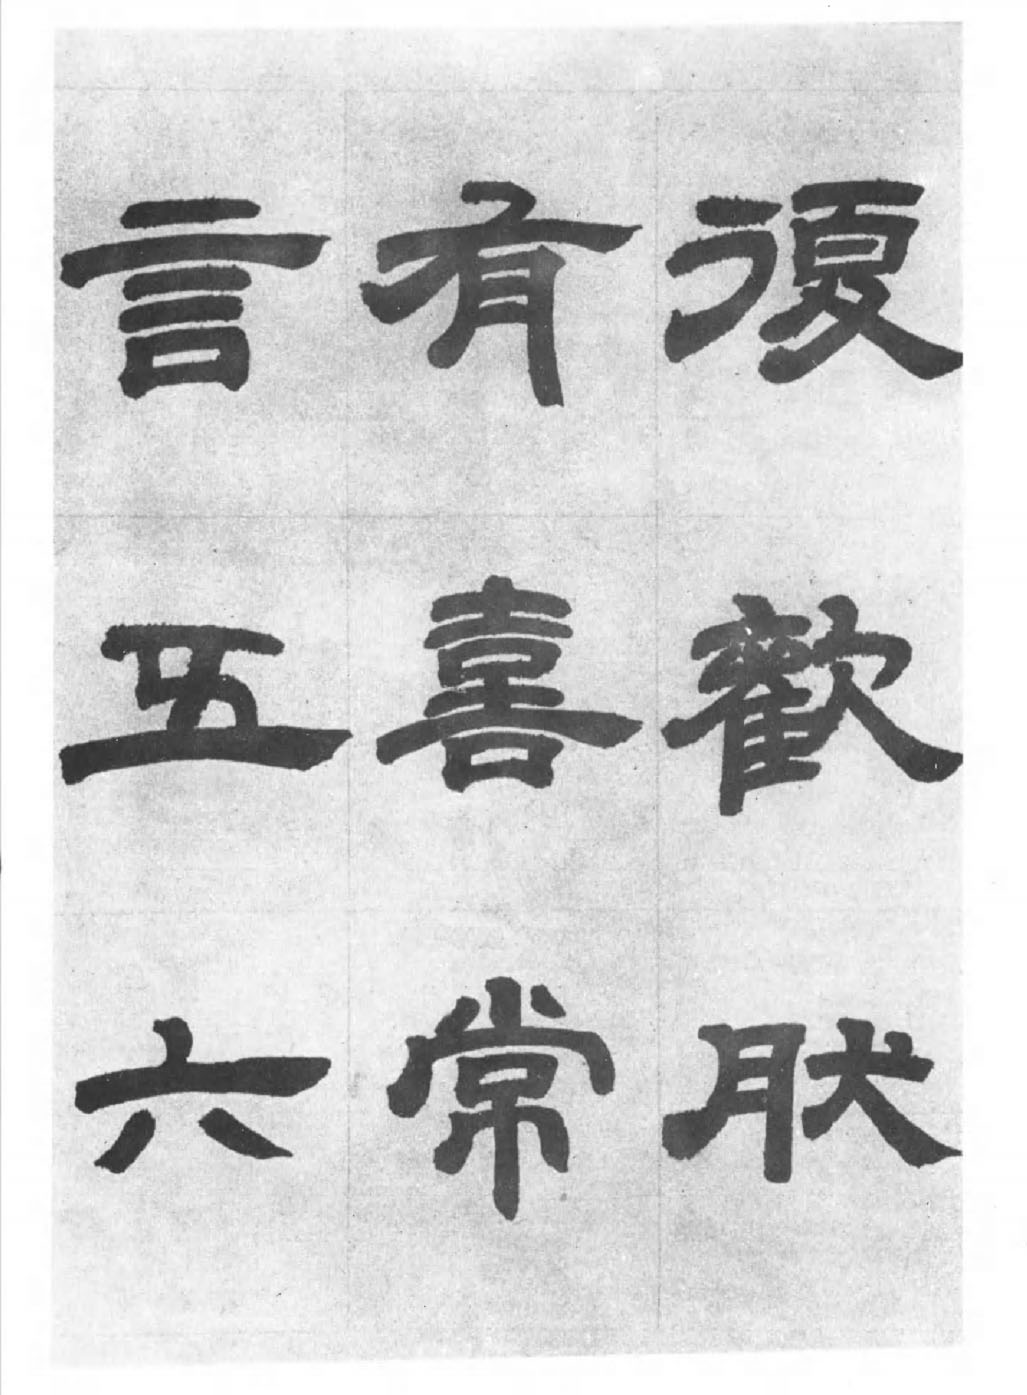 復歡肰
有喜常
言五六